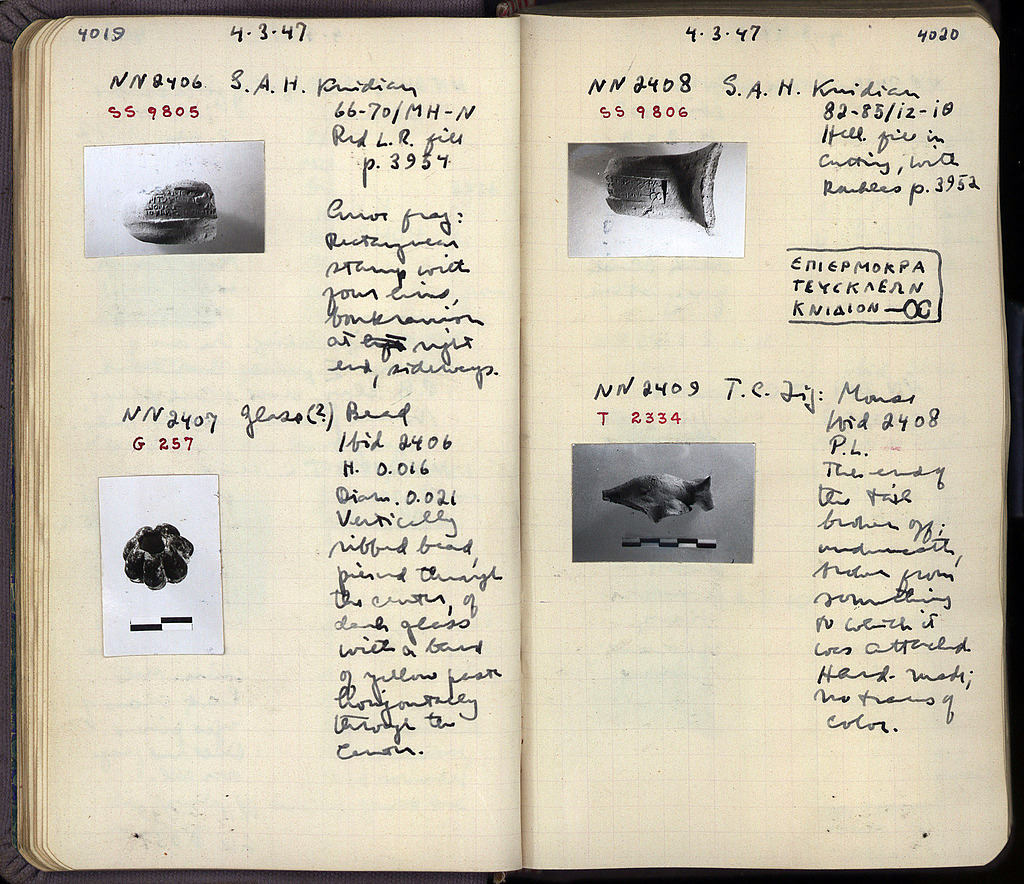 4019
4.3.47
NN 2406 S.A.H. Knidian
SS 9805
66-70/MH-N
Red L.R. fill
p. 3954
Curve frag:
Rectangular
stamp with
four lines,
boukranion
at right
end, sideways.
NN 2407 glass(?) Bead
G 257
Ibid 2406
H. 0.016
Diam. 0.021
Vertically
ribbed bead,
pierced through
the center, of
dark glass
with a band
of yellow paste
horizontally
through the
center.
4.3.47
4020
NN 2408 S.A.H. Knidian
SS 9806
82-85/ΙΖ-ΙΘ
Hell. fill in
cutting, with
Roubles p. 3952
ΕΠΙΕΡΜΟΚΡΑ
ΤΕΥϹΚΛΕΩΝ
ΚΝΙΔΙΟΝ
NN 2409 T.C. Fig: Mouse
T 2334
Ibid 2408
P.L.
The end of
the tail
broken off;
underneath,
broken from
something
to which it
was attached
Hand-made;
no traces of
color.